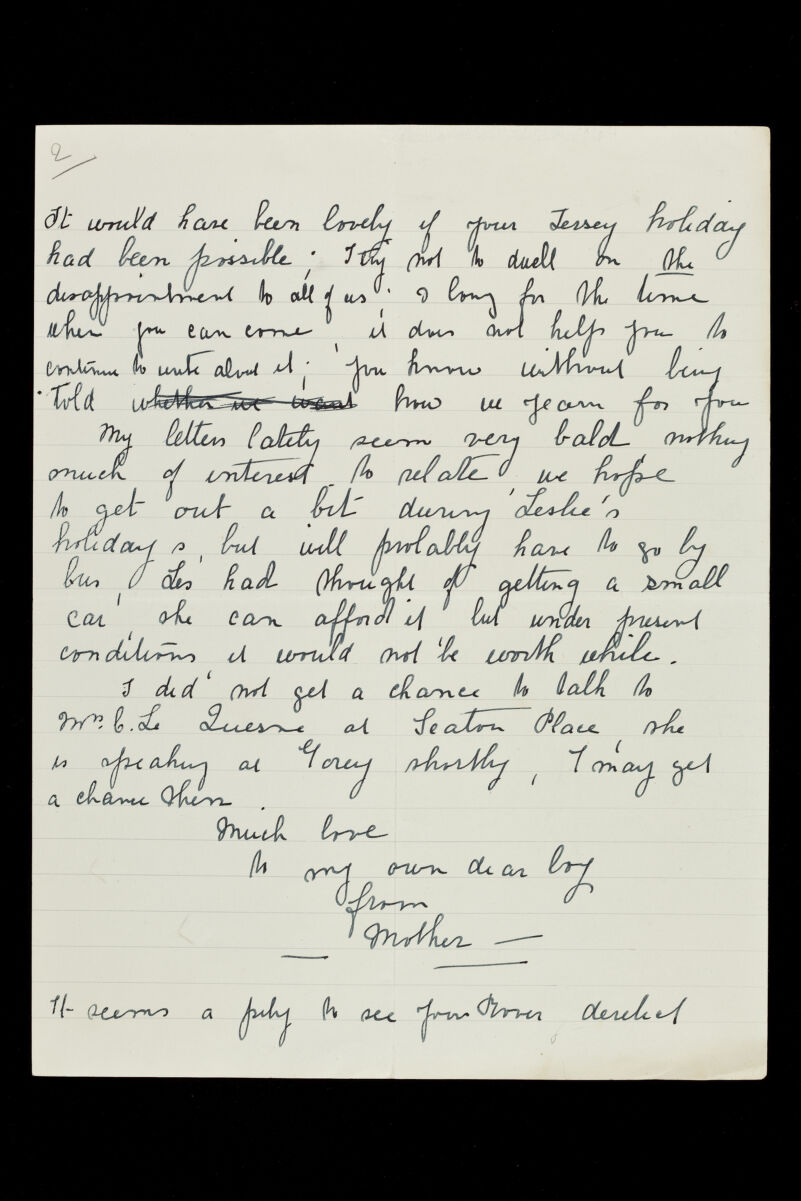 2
It would have been lovely if your Jersey holiday
had been possible; I try not to dwell on the
disappointment to all of us. I long for the time
when you can come, it does not help you to
continue to write about it; you know without being
told whether we want how we yearn for you
My letters lately seem very bald, nothing
much of interest to relate, we hope
to get out a bit during Leslie's
holidays, but will probably have to go by
bus, Les had thought of getting a small
car, she can afford it but under present
conditions it would not be worth while.
I did not get a chance to talk to
Mrs. C. Le Quesne at Seaton Place, she
is speaking at Gorey shortly, I may get
a chance then.
Much love
to my own dear boy
from
Mother —
It seems a pity to see your Rover derelict